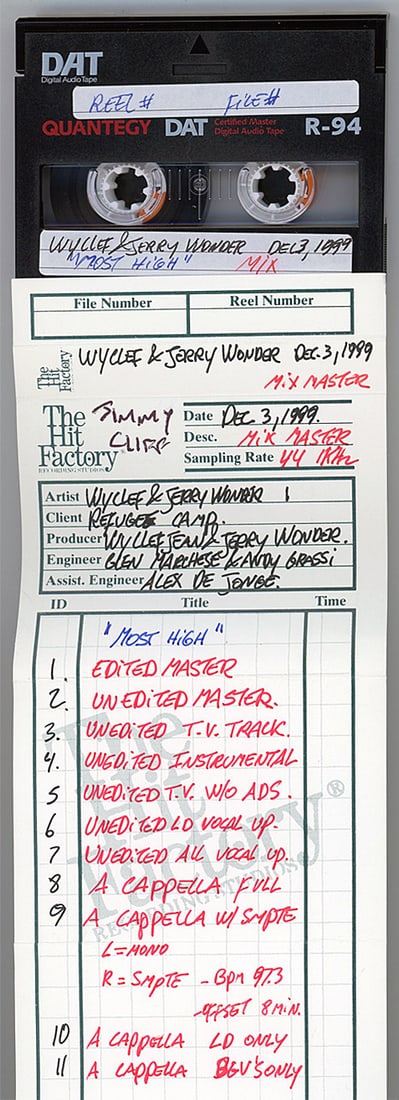 DAT
Digital Audio Tape
REEL # FILE #
QUANTEGY DAT Certified Master Digital Audio Tape R-94
WYCLEF & JERRY WONDER DEC 3, 1999
"MOST HIGH" MIX
File Number Reel Number
The Hit Factory WYCLEF & JERRY WONDER DEC. 3, 1999
MIX MASTER
The Hit Factory®
RECORDING STUDIOS
JIMMY CLIFF
Date DEC 3, 1999.
Desc. MIX MASTER
Sampling Rate 44.1KHz
Artist WYCLEF & JERRY WONDER
Client REFUGEE CAMP.
Producer WYCLEF JEAN & JERRY WONDER.
Engineer GLEN MARCHESE & ANDY GRASSI
Assist. Engineer ALEX DE JONGE.
ID Title Time
"MOST HIGH"
1. EDITED MASTER
2. UNEDITED MASTER.
3. UNEDITED T.V. TRACK.
4. UNEDITED INSTRUMENTAL
5 UNEDITED T.V. W/O ADS.
6 UNEDITED LD VOCAL UP.
7 UNEDITED ALL VOCAL UP.
8 A CAPPELLA FULL
9 A CAPPELLA W/ SMPTE
L = MONO
R = SMPTE - BPM 97.3
- OFFSET 8 MIN.
10 A CAPPELLA LD ONLY
11 A CAPPELLA BGV'S ONLY
The Hit Factory®
RECORDING STUDIOS